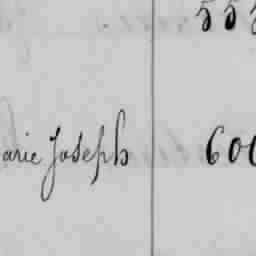 555
arie Joseph 600